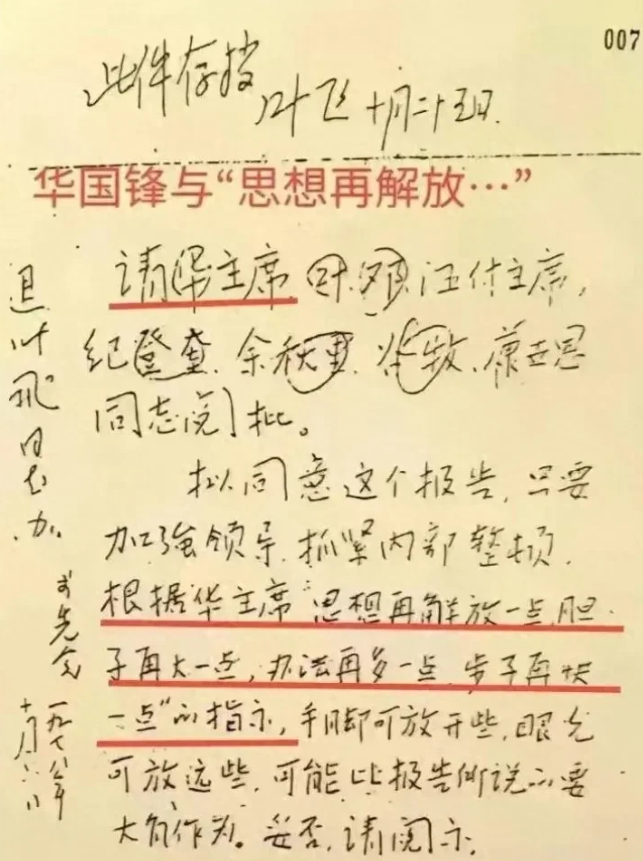 007
此件存档
叶飞 十月二十五日
华国锋与“思想再解放…”
请华主席 叶、邓、汪付主席,
纪登奎、余秋里、谷牧、康世恩
同志阅批。
拟同意这个报告,只要
加強领导,抓紧内部整顿,
根据华主席“思想再解放一点,胆
子再大一点,办法再多一点,步子再快
一点”的指示,手脚可放开些,眼光
可放远些,可能比报告所说的要
大有作为。妥否,请阅示。
退叶飞同志办。
李先念
一九七八年
十月